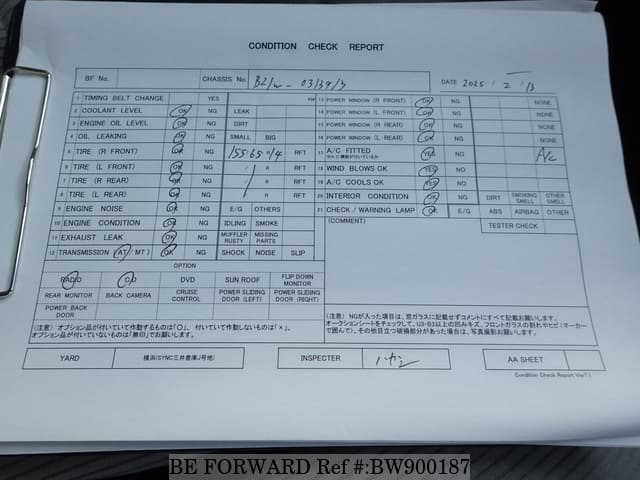 CONDITION CHECK REPORT
BF No. CHASSIS No. DATE 2025 / 2 / 13
1 TIMING BELT CHANGE YES KM
2 COOLANT LEVEL OK NG LEAK
3 ENGINE OIL LEVEL OK NG DIRT
4 OIL LEAKING OK NG SMALL BIG
5 TIRE (R FRONT) OK NG 155-65-14 RFT
6 TIRE (L FRONT) OK NG / R RFT
7 TIRE (R REAR) OK NG / R RFT
8 TIRE (L REAR) OK NG R RFT
9 ENGINE NOISE OK NG E/G OTHERS
10 ENGINE CONDITION OK NG IDLING SMOKE
11 EXHAUST LEAK OK NG MUFFLER RUSTY MISSING PARTS
12 TRANSMISSION (AT/ MT) OK NG SHOCK NOISE SLIP
13 POWER WINDOW (R FRONT) OK NG NONE
14 POWER WINDOW (L FRONT) OK NG NONE
15 POWER WINDOW (R REAR) OK NG NONE
16 POWER WINDOW (L REAR) OK NG NONE
17 A/C FITTED YES NO A/C
18 WIND BLOWS OK YES NO
19 A/C COOLS OK YES NO
20 INTERIOR CONDITION OK NG DIRT SMOKING SMELL OTHER SMELL
21 CHECK / WARNING LAMP OK E/G ABS AIRBAG OTHER
(COMMENT) TESTER CHECK
OPTION
RADIO CD DVD SUN ROOF FLIP DOWN MONITOR
REAR MONITOR BACK CAMERA CRUISE CONTROL POWER SLIDING DOOR (LEFT) POWER SLIDING DOOR (RIGHT)
POWER BACK DOOR
(注意) オプション品が付いていて作動するものは「○」、付いていて作動しないものは「×」、
オプション品が付いていないものは「無印」でお願いします。
(注意) NGが入った項目は、窓ガラスに記載せずコメントにすべて記載お願いします。
オークションシートをチェックして、U3・B3以上の凹みキズ、フロントガラスの割れやヒビ(マーカー
で囲んで)、その他目立つ破損部分があった場合は、写真撮影お願いします。
YARD 横浜(SYNC三井倉庫J号他) INSPECTER AA SHEET
Condition Check Report Ver7.1
BE FORWARD Ref #:BW900187